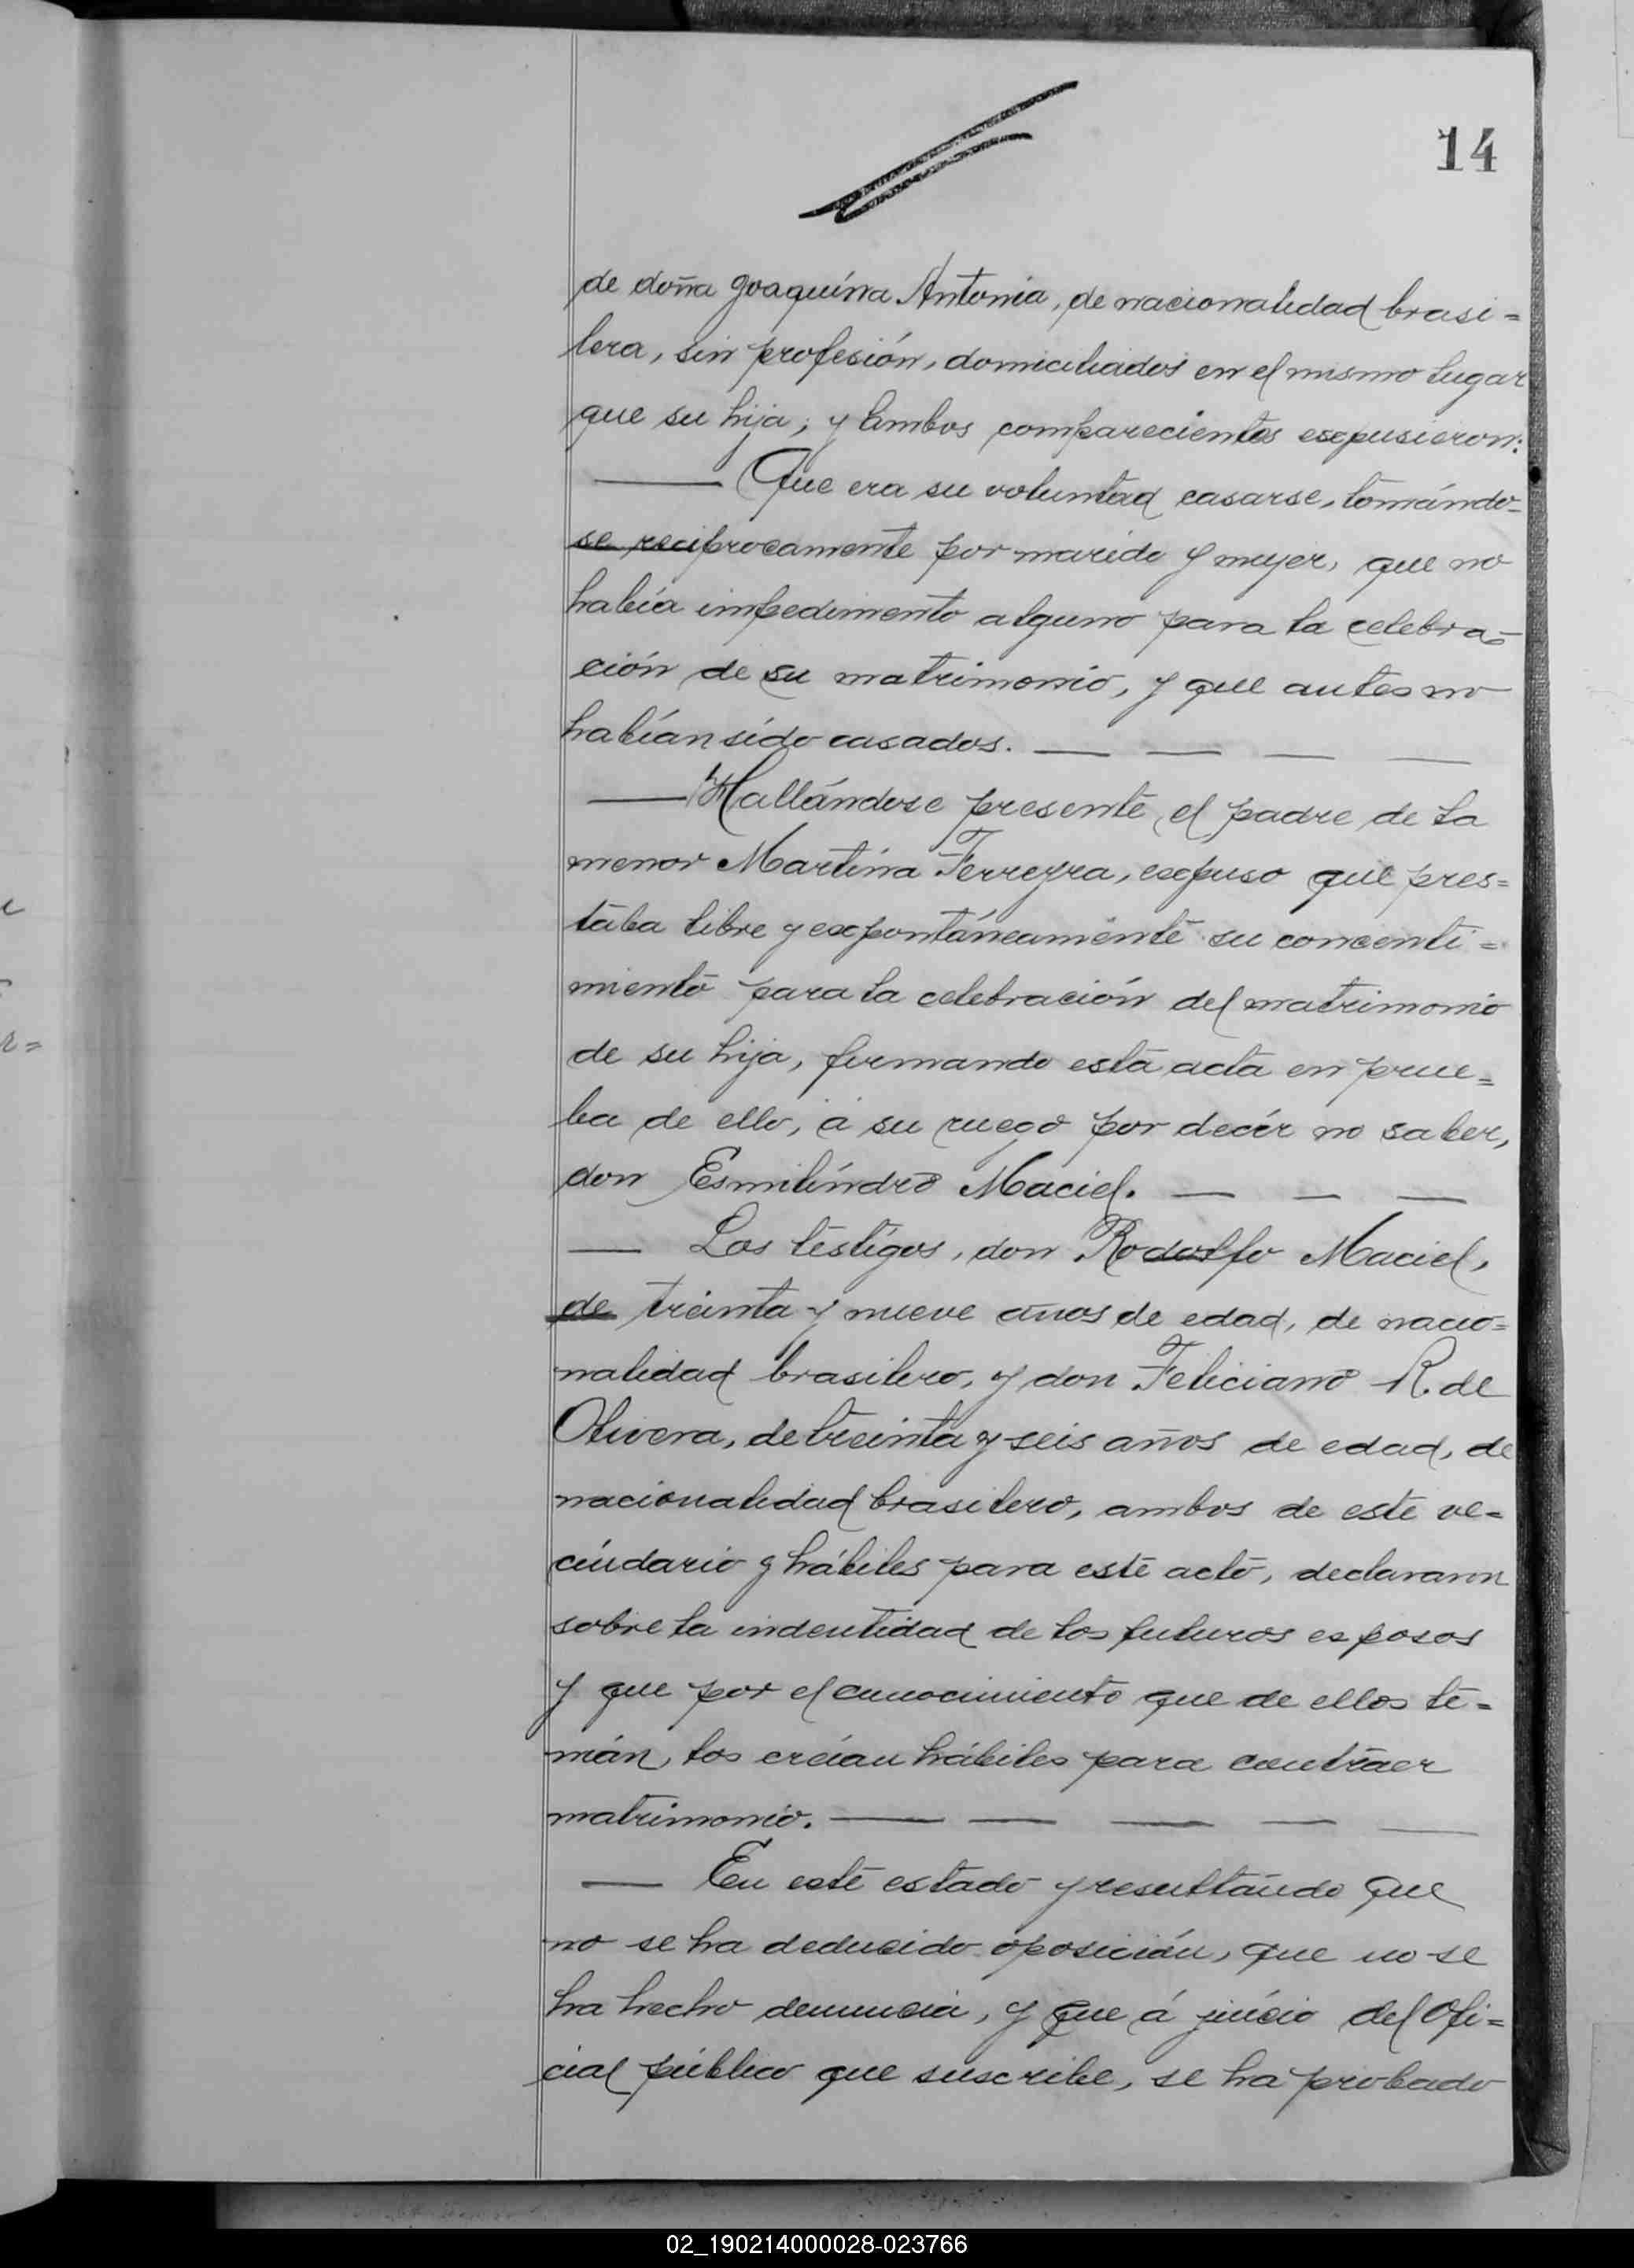 14
de doña Joaquína Antonia, de nacionalidad brasi=
lera, sin profesión, domiciliados en el mismo lugar
que su hija; y ambos comparecientes expusieron:
— Que era su voluntad casarse, tomándo-
se recíprocamente por marido y mujer, que no
había impedimento alguno para la celebra-
ción de su matrimonio, y que antes no
habían sído casados. — — — —
— Hallándose presente, el padre de la
menor Martína Ferreyra, expuso que pres=
taba libre y expontáneamente su concenti=
miento para la celebración del matrimonio
de su hija, firmando esta acta en prue=
ba de ello, á su ruego por decír no saber,
don Esmilíndro Maciel. — — —
— Los testígos, don Rodolfo Maciel,
de treinta y nueve años de edad, de nacio=
nalidad brasilero, y don Feliciano R. de
Olivera, de treinta y seis años de edad, de
nacionalidad brasilero, ambos de este ve=
cíndario y hábiles para este acto, declararon
sobre la indentidad de los futuros esposos
y que por el conocimiento que de ellos te=
nían, los creían hábiles para contraer
matrimonio. — — — — —
— En este estado y resultando que
no se ha deducido oposición, que no se
ha hecho denuncia, y que á juício del Ofi=
cial público que suscribe, se ha probado
02_190214000028-023766